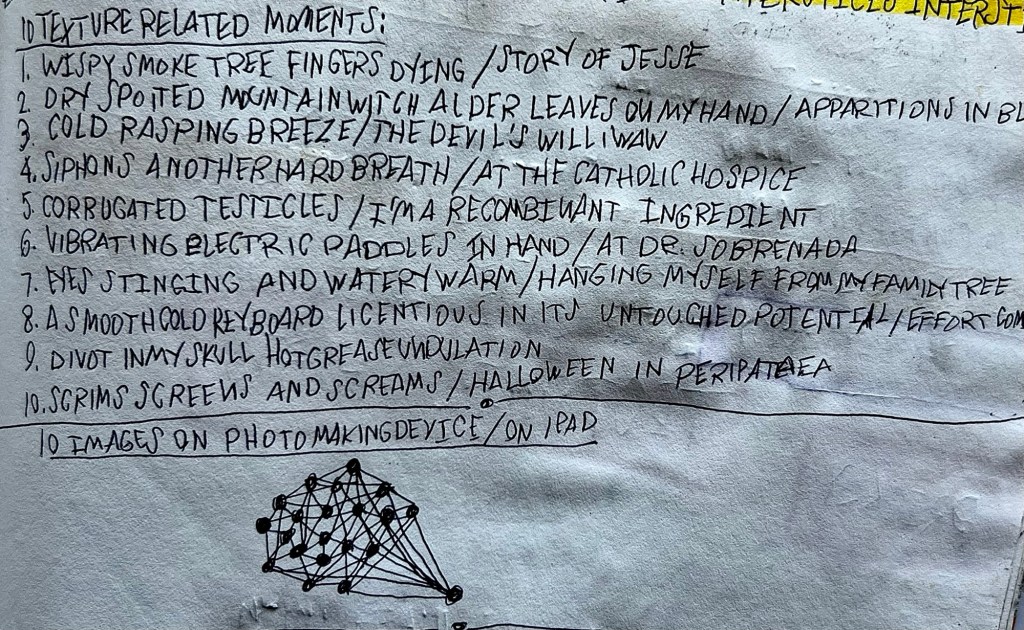 INTERSTI
10 TEXTURE RELATED MOMENTS:
1. WISPY SMOKE TREE FINGERS DYING / STORY OF JESSE
2. DRY SPOTTED MOUNTAIN WITCH ALDER LEAVES ON MY HAND / APPARITIONS IN BL
3. COLD RASPING BREEZE / THE DEVIL'S WILLIWAW
4. SIPHONS ANOTHER HARD BREATH / AT THE CATHOLIC HOSPICE
5. CORRUGATED TESTICLES / I'M A RECOMBINANT INGREDIENT
6. VIBRATING ELECTRIC PADDLES IN HAND / AT DR. SOBRENADA
7. EYES STINGING AND WATERY WARM / HANGING MYSELF FROM MY FAMILY TREE
8. A SMOOTH COLD KEYBOARD LICENTIOUS IN ITS UNTOUCHED POTENTIAL / EFFORT COM
9. DIVOT IN MY SKULL HOT GREASE UNDULATION
10. SCRIMS SCREENS AND SCREAMS / HALLOWEEN IN PERIPATAEA
10 IMAGES ON PHOTO MAKING DEVICE / ON IPAD